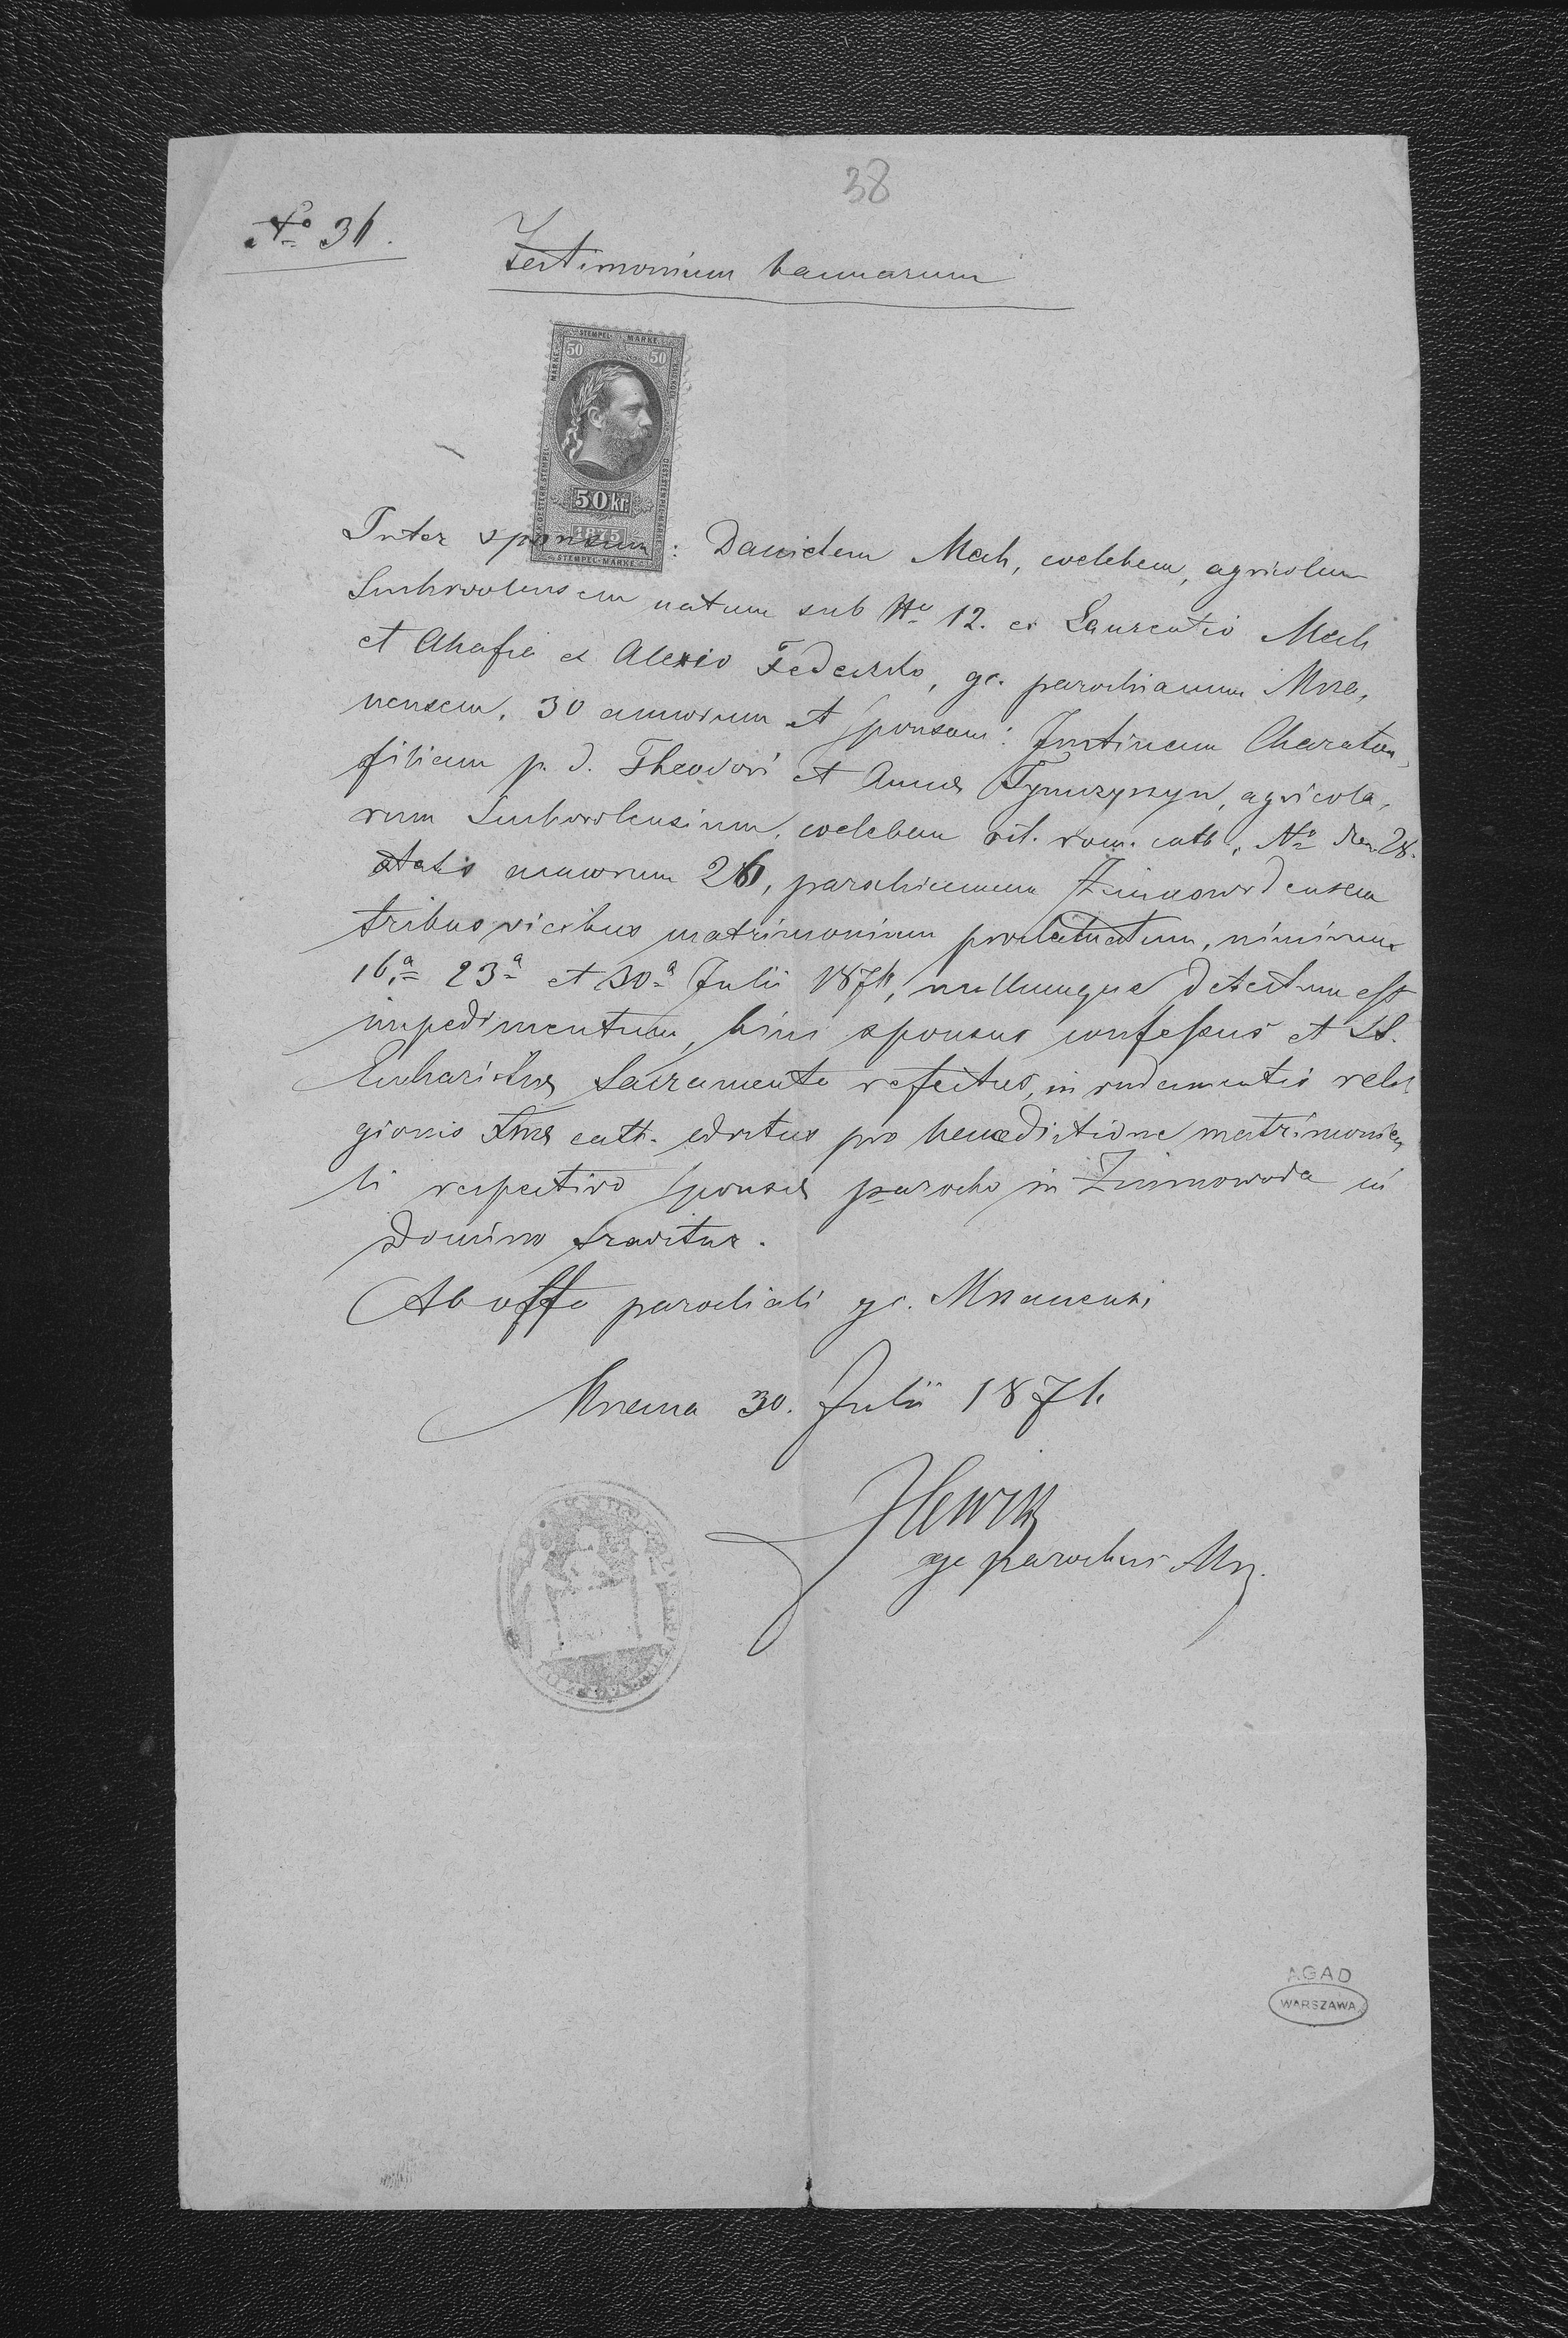 38
No 36.
Testimonium bannorum
STEMPEL MARKE
50 50
50 kr
1875
STEMPEL-MARKE
Inter sponsum: Davidem Mach, coelebem, agricolam
Suchowolensem natum sub No 12. ex Laurentio Mach
et Ahafia ex Alexio Fedeczko, gc. parochianum Mza,
nensem, 30 annorum et sponsam: Justinam Charaton,
filiam p. d. Theodori et Annae Tymczyszyn, agricola,
rum Suchowolensium, coelebem rit. rom. cath, No 28.
aetatis annorum 26, parochianam Zimnowodensem
tribus vicibus matrimonium proclamatum, nimirum
16.a 23a et 30a Julii 1876, nullumque detectum est
impedimentum, hinc sponsus confessus et SS.
Eucharistiae Sacramento refectus, in rudimentis reli
gionis Xnae cath. edoctus pro benedictione matrimonia,
li respectivo sponsae parocho in Zimnowoda in
Domino traditur.
Ab offo parochiali gc. Mszanensi
Mszana 30. Julii 1876
gc parochus Msz.
AGAD
WARSZAWA